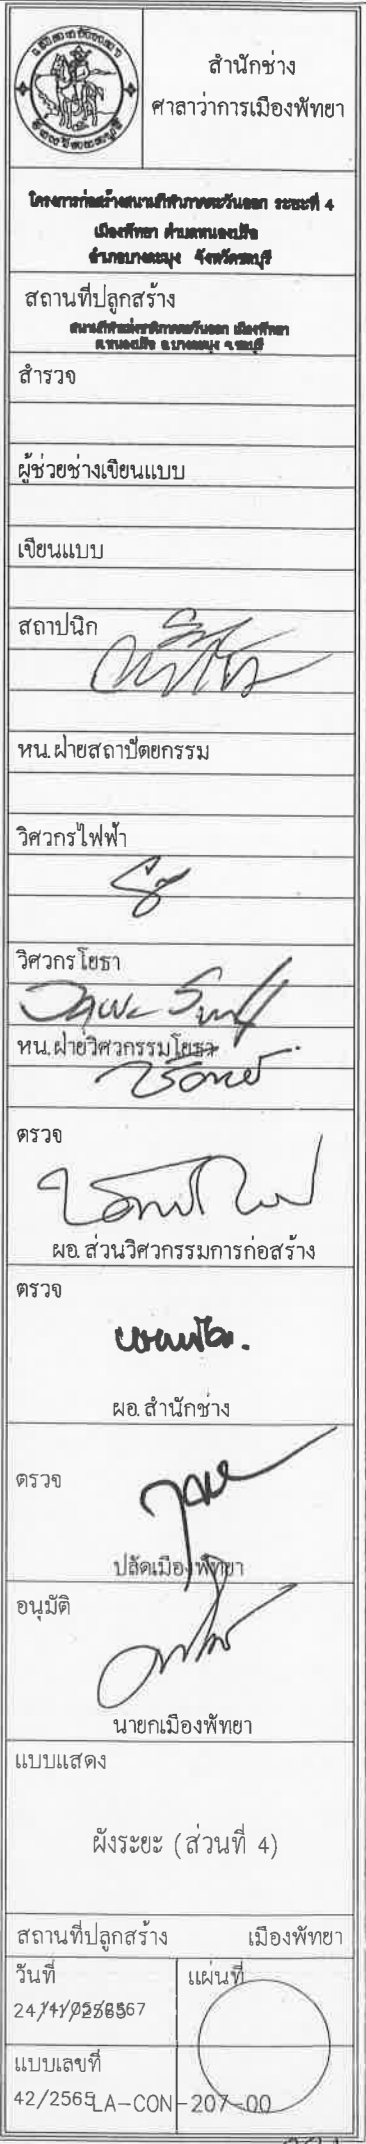 สำนักช่าง
ศาลาว่าการเมืองพัทยา
โครงการก่อสร้างสนามกีฬาภาคตะวันออก ระยะที่ 4
เมืองพัทยา ตำบลหนองปรือ
อำเภอบางละมุง จังหวัดชลบุรี
สถานที่ปลูกสร้าง
สนามกีฬาแห่งชาติภาคตะวันออก เมืองพัทยา
ต.หนองปรือ อ.บางละมุง จ.ชลบุรี
สำรวจ
ผู้ช่วยช่างเขียนแบบ
เขียนแบบ
สถาปนิก
หน.ฝ่ายสถาปัตยกรรม
วิศวกรไฟฟ้า
วิศวกรโยธา
หน.ฝ่ายวิศวกรรมโยธา
ตรวจ
ผอ.ส่วนวิศวกรรมการก่อสร้าง
ตรวจ
ผอ.สำนักช่าง
ตรวจ
ปลัดเมืองพัทยา
อนุมัติ
นายกเมืองพัทยา
แบบแสดง
ผังระยะ (ส่วนที่ 4)
สถานที่ปลูกสร้าง เมืองพัทยา
วันที่ แผ่นที่
แบบเลขที่
42/2565 LA-CON-207-00